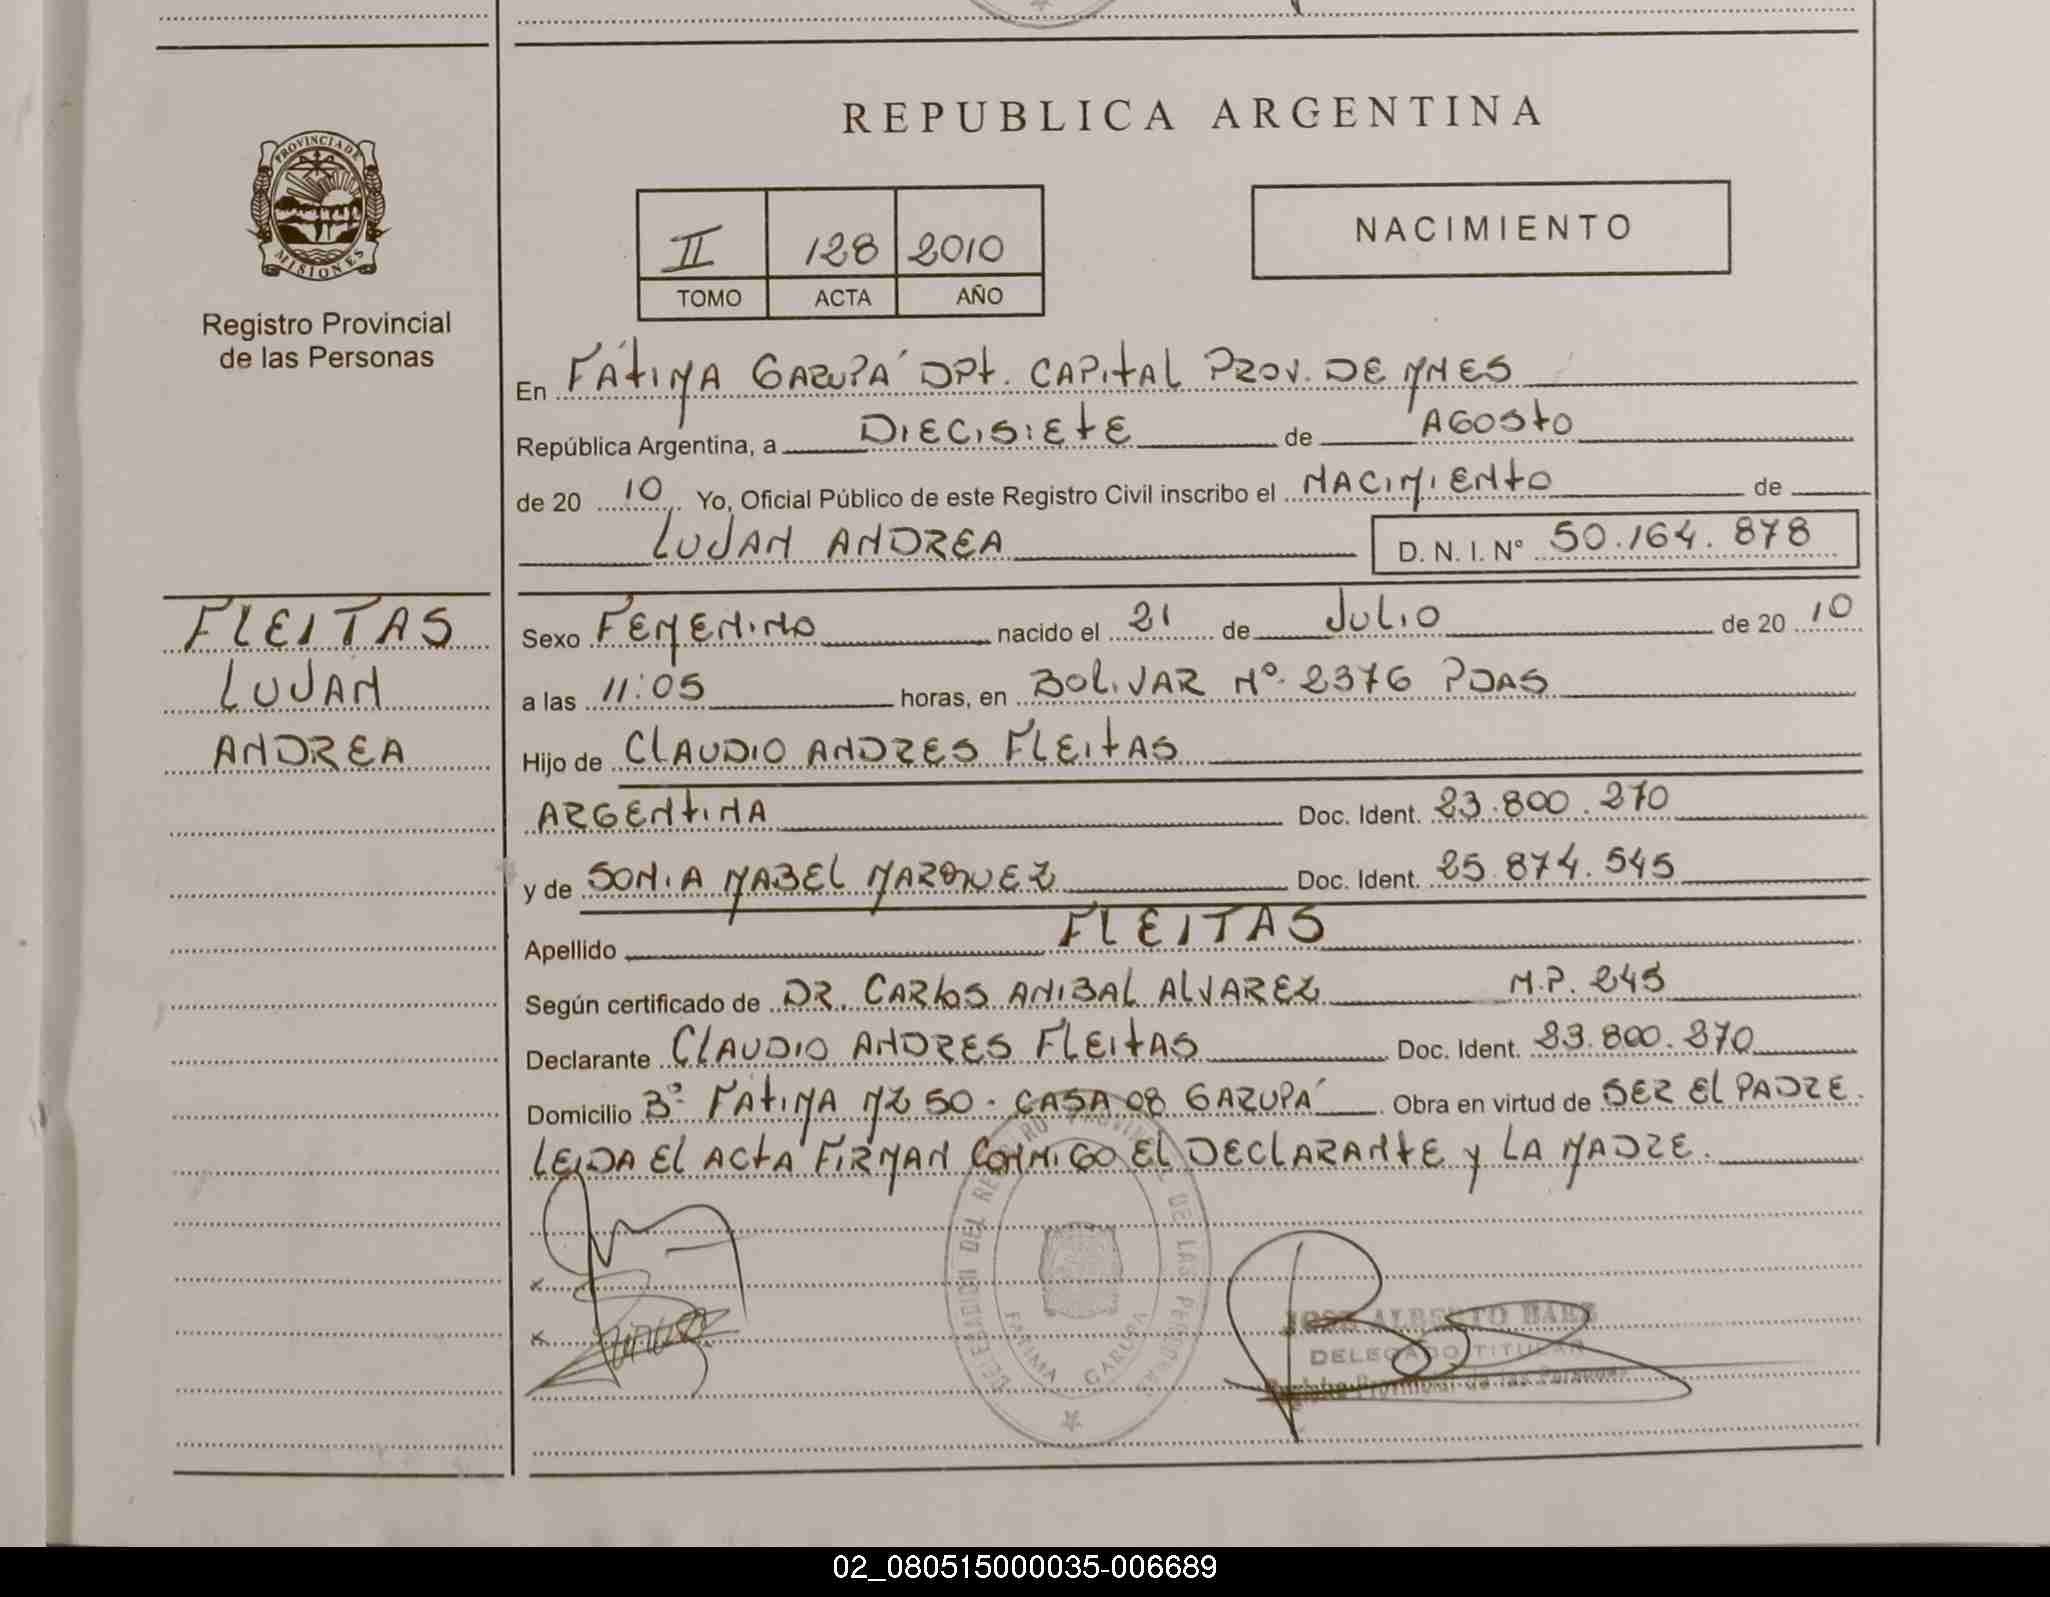 REPUBLICA ARGENTINA
PROVINCIA DE
MISIONES
Registro Provincial
de las Personas
II 128 2010
TOMO ACTA AÑO
NACIMIENTO
En FÁTIMA GARUPÁ DPT. CAPITAL PROV. DE MNES
República Argentina, a DIECISIETE de AGOSTO
de 20 10 Yo, Oficial Público de este Registro Civil inscribo el NACIMIENTO de
LUJAN ANDREA D. N. I. Nº 50.164.878
FLEITAS
LUJAN
ANDREA
Sexo FEMENINO nacido el 21 de JULIO de 20 10
a las 11:05 horas, en BOLIVAR Nº 2376 PDAS
Hijo de CLAUDIO ANDRES FLEITAS
ARGENTINA Doc. Ident. 23.800.270
y de SONIA MABEL MARQUEZ Doc. Ident. 25.874.545
Apellido FLEITAS
Según certificado de DR. CARLOS ANIBAL ALVAREZ M.P. 245
Declarante CLAUDIO ANDRES FLEITAS Doc. Ident. 23.800.270
Domicilio Bº FATIMA MZ 50 - CASA 08 GARUPÁ Obra en virtud de SER EL PADRE.
LEIDA EL ACTA FIRMAN CONMIGO EL DECLARANTE Y LA MADRE.
DELEGACION DEL REGISTRO PROVINCIAL DE LAS PERSONAS
FATIMA GARUPA
JOSE ALBERTO BAEZ
DELEGADO TITULAR
Registro Provincial de las Personas
02_080515000035-006689